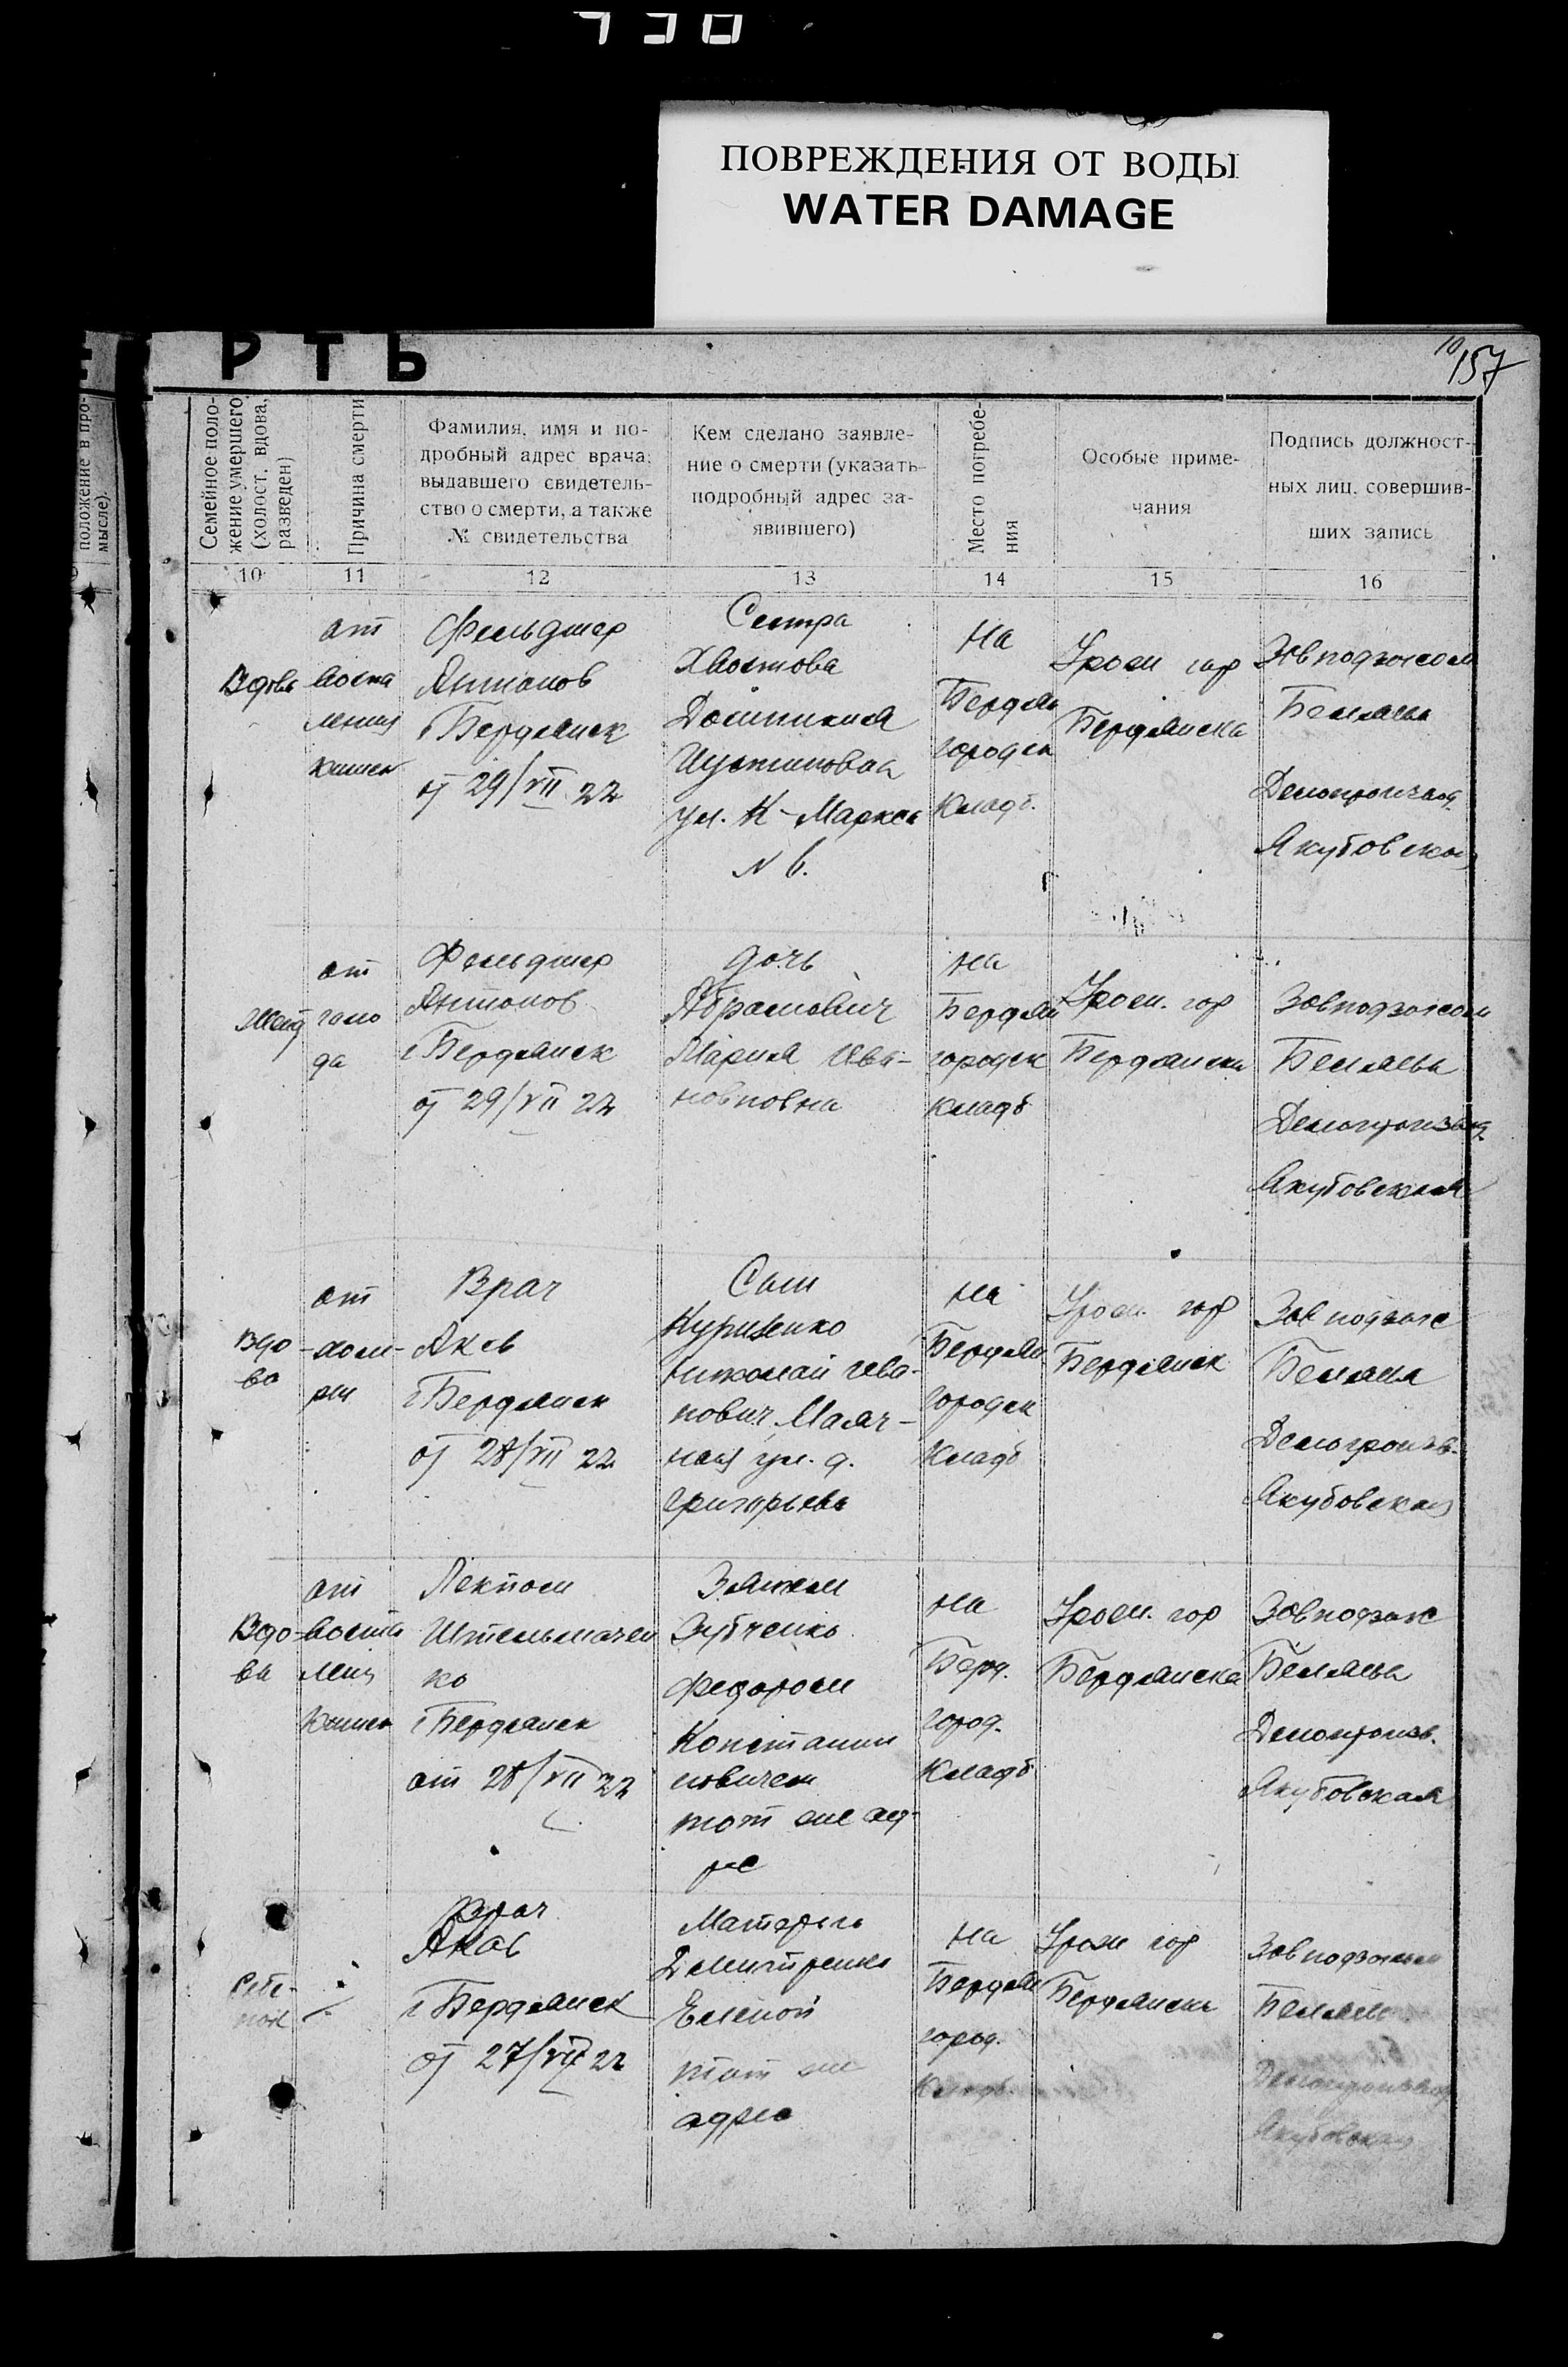 ПОВРЕЖДЕНИЯ ОТ ВОДЫ
WATER DAMAGE
РТЬ
10
157
положение в про-
мысле).
Семейное поло-
жение умершего
(холост. вдова,
разведен)
Причина смерти
Фамилия, имя и по-
дробный адрес врача,
выдавшего свидетель-
ство о смерти, а также
№ свидетельства
Кем сделано заявле-
ние о смерти (указать
подробный адрес за-
явившего)
Место погребе-
ния
Особые приме-
чания
Подпись должност-
ных лиц, совершив-
ших запись
10
11
12
13
14
15
16
Вдова
от
воспа
ления
кишек
Фельдшер
Антонов
г Бердянск
от 29/VII 22
Сестра
Хвостова
Устиновна
ул. К-Маркса
N 6.
На
Бердян
городск
кладб.
Урож гор
Бердянска
Завподзагсом
Беляева
Делопроизвод
Якубовская
от
голо
да
Фельдшер
Антонов
г Бердянск
от 29/VII 22
дочь
Абрамович
Мария Ива-
новновна
на
Бердян
городск
кладб
Урож. гор
Бердянска
Завподзагсом
Беляева
Делопроизвод
Якубовская
Вдо
ва
от
холе-
ры
Врач
Акав
г Бердянск
от 28/VII 22
Сын
Николай Ива-
нович Маяч-
ная ул. д.
Григорьева
на
Бердян
городск
кладб
Урож. гор
Бердянск
Зав подзагс
Беляева
Делопроизв.
Якубовская
Вдо-
ва
от
воспа
лен
кишек
Лекпом
Штельмачен
ко
г Бердянск
от 28/VII 22
Зятем
Зубченко
Федором
Констанши
новичем
тот же ад-
рес
на
Берд.
город.
кладб
Урож. гор
Бердянска
Завподзагс
Беляева
Делопроизв.
Якубовская
Ребе-
нок
Врач
Акав
г Бердянск
от 27/VII 22
Матерью
Дмитренко
Еленой
тот же
адрес
на
Бердян
город.
кладб.
Урож гор
Бердянска
Завподзагсом
Беляева
Делопроизвод
Якубовская